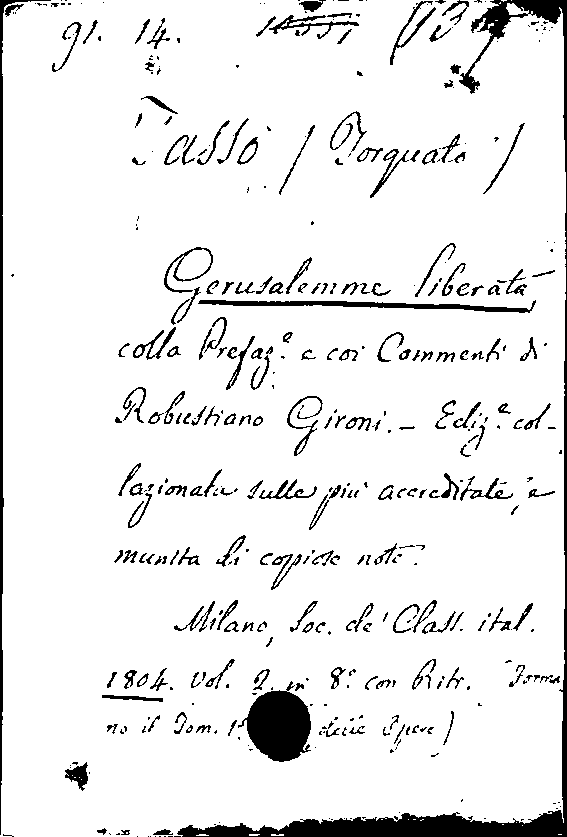 91. 14.
Tasso (Torquato)
Gerusalemme liberata,
colla Prefaz.e e coi Commenti di
Robustiano Gironi. - Ediz.e col-
lazionata sulle più accreditate, e
munita di copiose note.
Milano, Soc. de' Class. ital.
1804. Vol. 2. in 8.° con Ritr. (Forma-
no il Tom. delle Opere)